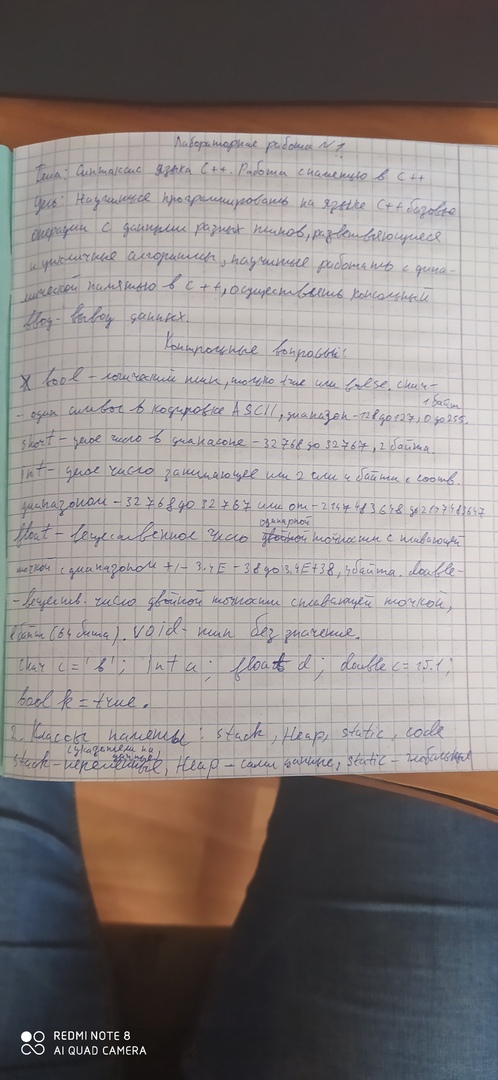 Лабораторная работа №1.
Тема: Синтаксис языка С++. Работа с памятью в С++
Цель: Научиться программировать на языке С++ базовые
операции с данными разных типов, разветвляющиеся
и цикличные алгоритмы, научиться работать с дина-
мической памятью в С++, осуществлять консольный
ввод-вывод данных.
Контрольные вопросы:
bool – логический тип, только true или false. char-
1 байт
- один символ в кодировке ASCII, диапазон -128 до 127, 0 до 255.
short – целое число в диапазоне -32768 до 32767, 2 байта.
int – целое число занимающее или 2 или 4 байта с соотв.
диапазоном -32768 до 32767 или от -2147483648 до 2147483647
одинарной
float – вещественное число точности с плавающей
точкой с диапазоном +/- 3.4E-38 до 3.4E+38, 4 байта. double-
- веществ. число двойной точности с плавающей точкой,
8 байт (64 бита). void – тип без значения.
char c = 'в'; int a; float d; double c = 15.1;
bool k = true.
2. Классы памяти: stack, Heap, static, code
(указатели на данные)
stack – переменные, Heap – сами данные, static – глобальные
REDMI NOTE 8
AI QUAD CAMERA